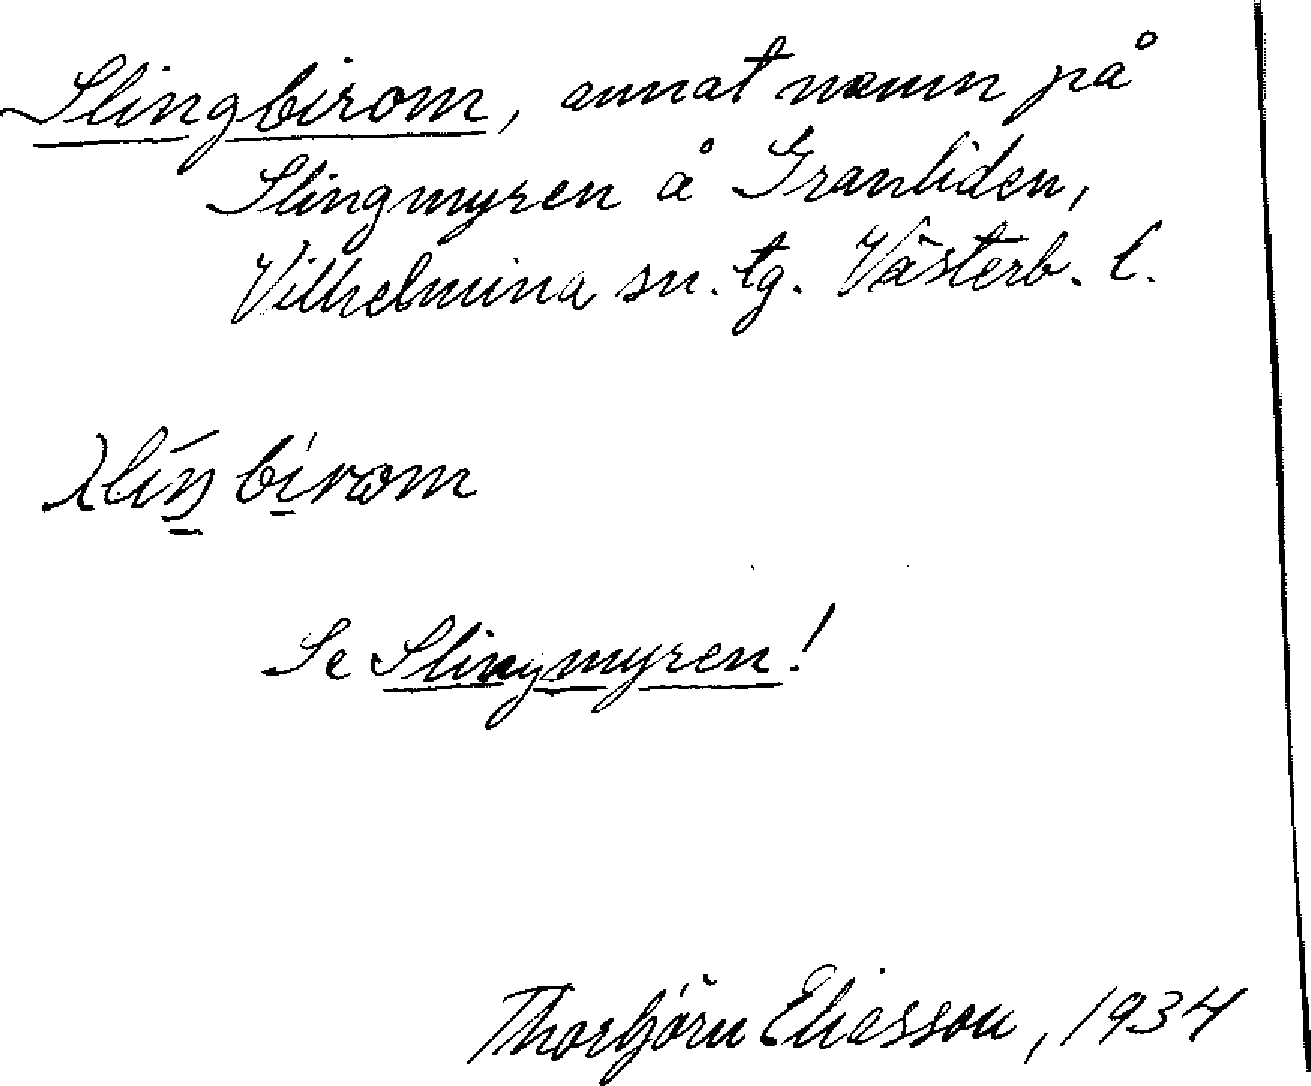 Slingbirom, annat namn på
Slingmyren å Granliden,
Vilhelmina sn. tg. Västerb. l.
Se Slingmyren!
Thorbjörn Eliesson, 1934